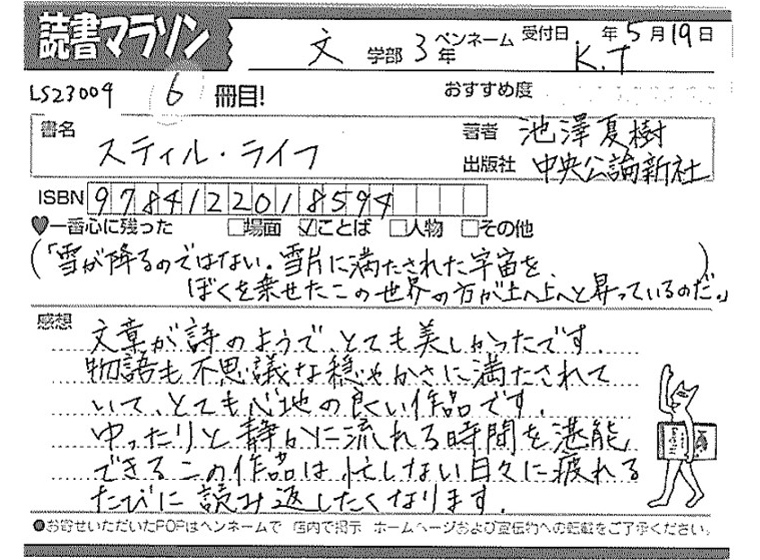 読書マラソン
文 学部 3年 ペンネーム K.T 受付日 年5月19日
LS23009 6 冊目! おすすめ度
書名 スティル・ライフ
著者 池澤夏樹
出版社 中央公論新社
ISBN 9784122018594
♥一番心に残った □場面 ☑ことば □人物 □その他
(「雪が降るのではない。雪片に満たされた宇宙を、
ぼくを乗せたこの世界の方が上へ上へと昇っているのだ。」)
感想
文章が詩のようで、とても美しかったです。
物語も不思議な穏やかさに満たされて
いて、とても心地の良い作品です。
ゆったりと静かに流れる時間を堪能
できるこの作品は忙しない日々に疲れる
たびに読み返したくなります。
●お寄せいただいたPOPはペンネームで 店内で掲示 ホームページおよび宣伝物への転載をご了承ください。